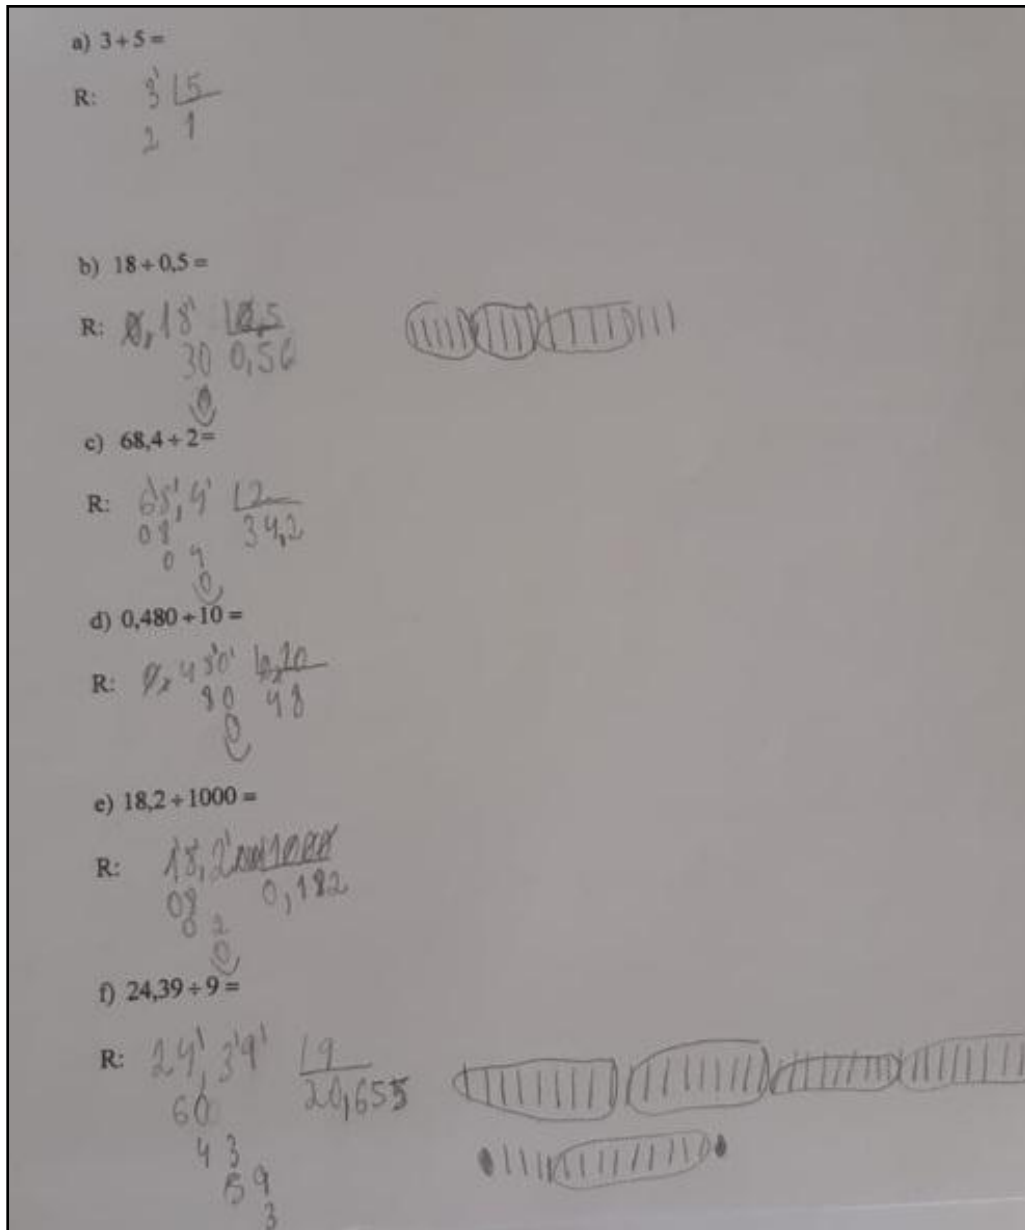 a) 3÷5=
R: 3' 5
2 1
b) 18÷0,5=
R: 0,18' 0,5
30 0,56
0
c) 68,4÷2=
R: 68',4' 2
08 34,2
04
0
d) 0,480÷10=
R: 0,48'0' 0,10
80 48
0
e) 18,2÷1000=
R: 18,2' 1000
08 0,182
0 2
0
f) 24,39÷9=
R: 24',3'9' 9
60 20,655
43
59
3